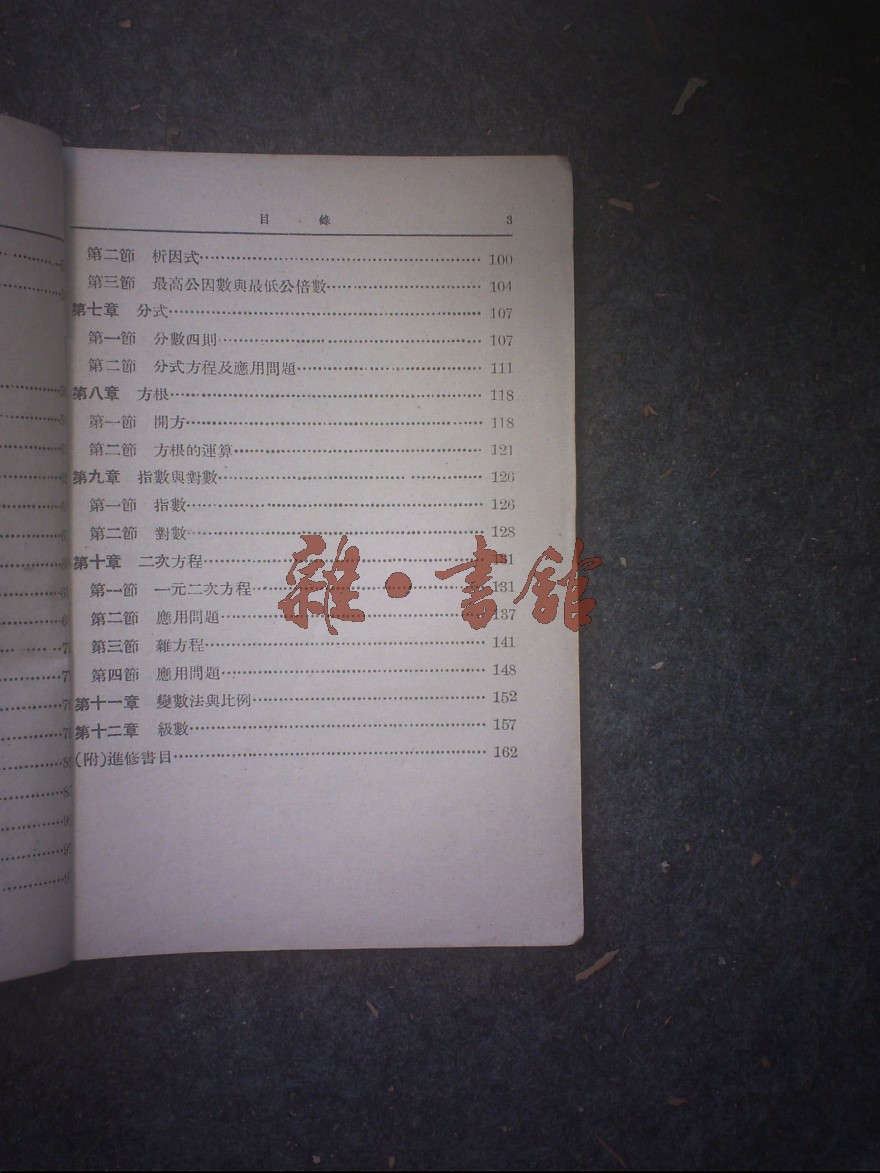 目 錄 3
第二節 析因式 100
第三節 最高公因數與最低公倍數 104
第七章 分式 107
第一節 分數四則 107
第二節 分式方程及應用問題 111
第八章 方根 118
第一節 開方 118
第二節 方根的運算 121
第九章 指數與對數 126
第一節 指數 126
第二節 對數 128
第十章 二次方程 131
第一節 一元二次方程 131
第二節 應用問題 137
第三節 雜方程 141
第四節 應用問題 148
第十一章 變數法與比例 152
第十二章 級數 157
(附)進修書目 162
雜·書館